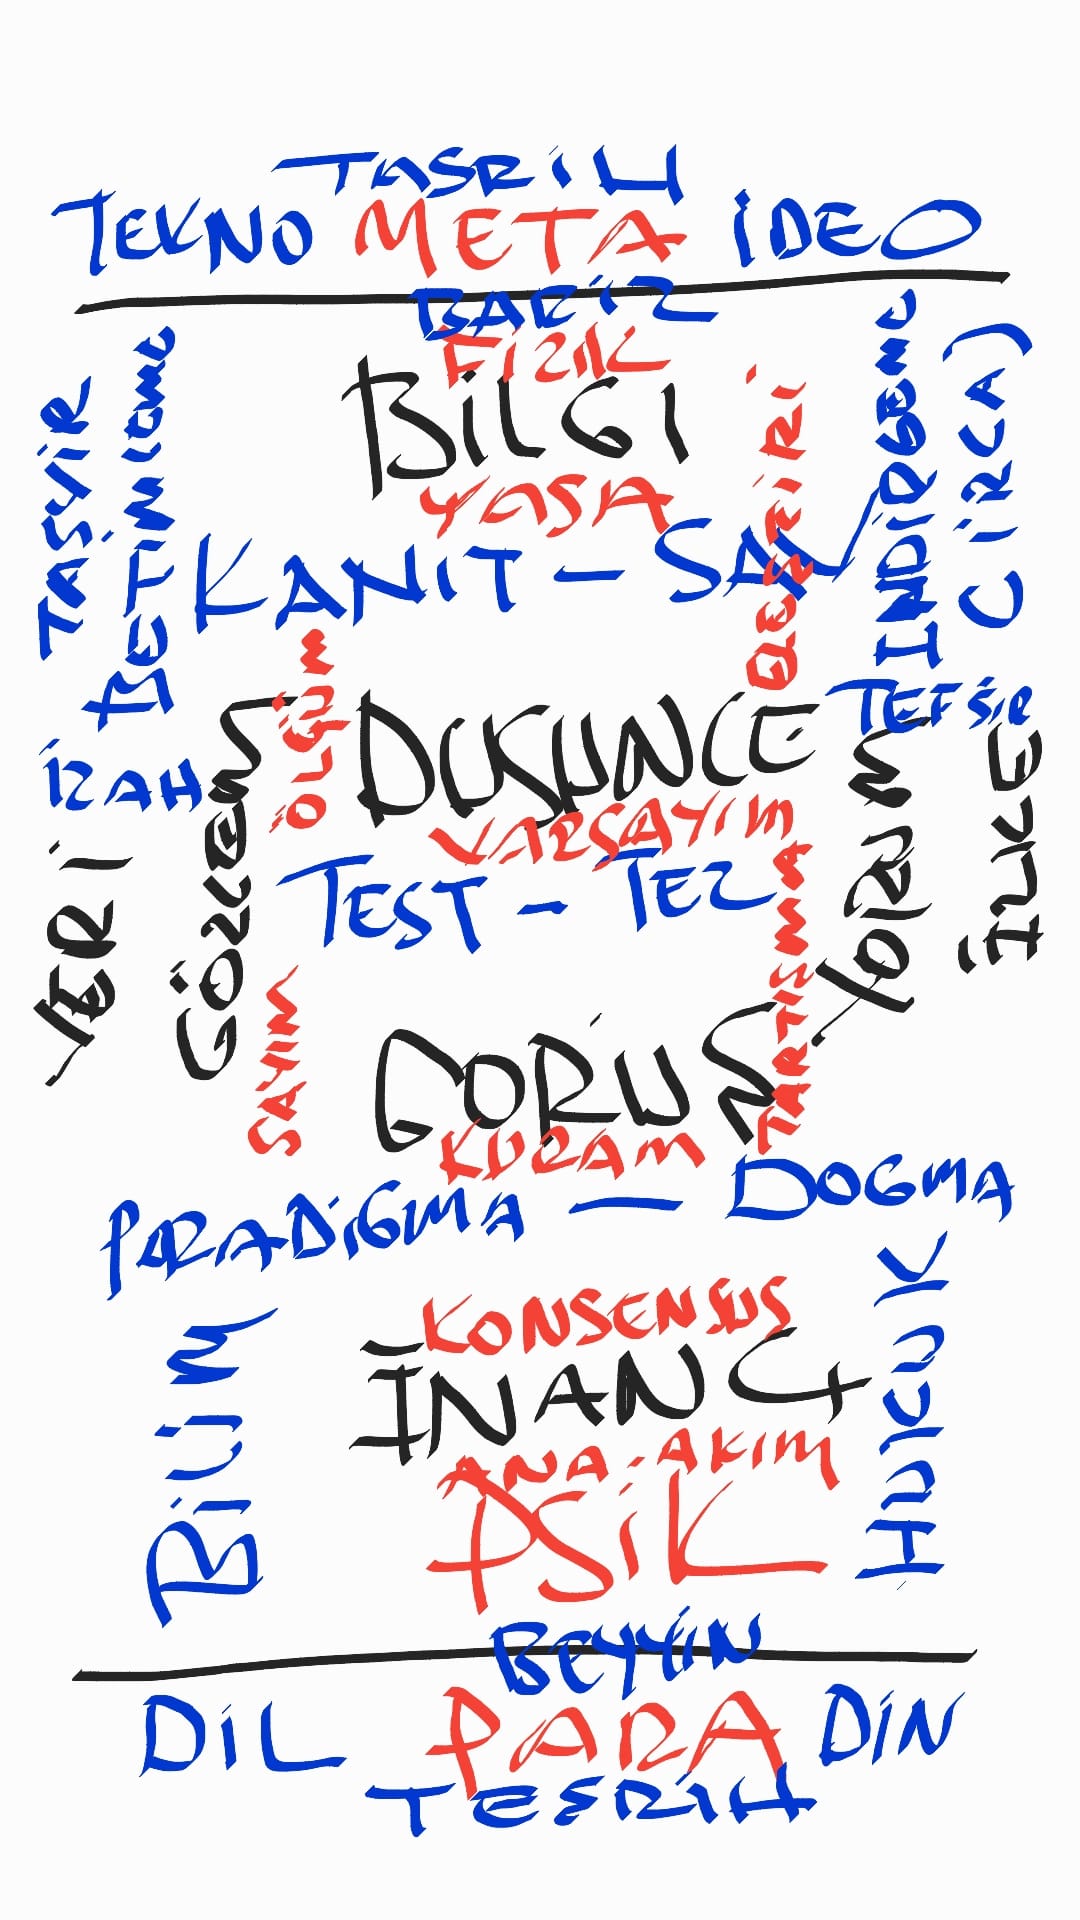 TASRİH
TEKNO META İDEO
BARİZ
FİZİK
BİLGİ
YASA
KANIT - SAV
TASVİR
BETİMLEME
ELEŞTİRİ
İNDİRGEME
CİRCA)
ÖLÇÜM
DÜŞÜNCE
TEFSİR
İZAH
VARSAYIM
TEST - TEZ
VERİ
GÖZLEM
YORUM
İLKE
SAYIM
TARTIŞMA
GÖRÜŞ
KURAM
PARADİGMA - DOGMA
KONSENSUS
İNANÇ
ANA-AKIM
BİLİM
HUKUK
PSİK
BEYYİN
DİL PARA DİN
TEŞRİH